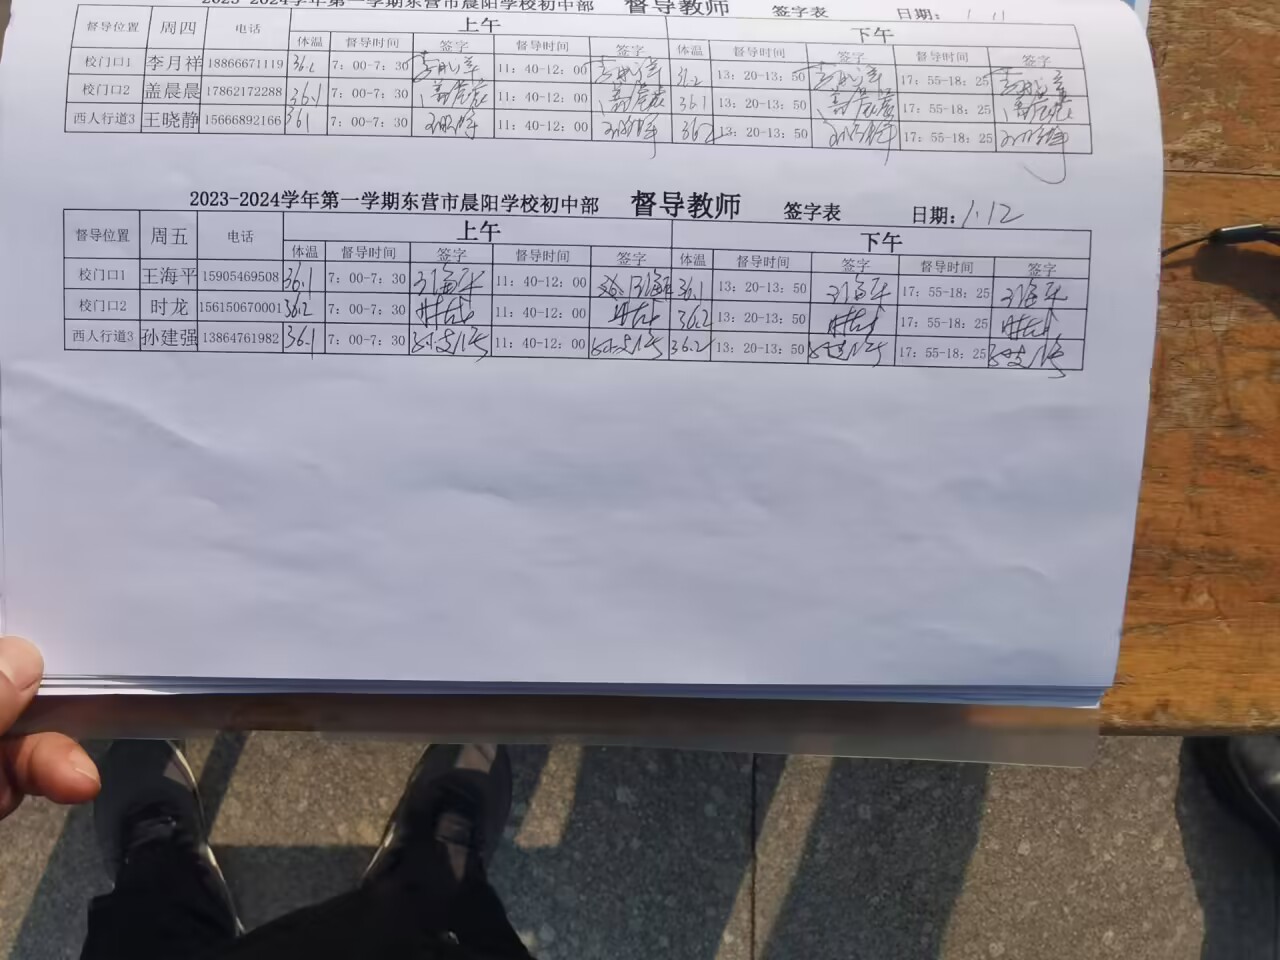 2023-2024学年第一学期东营市晨阳学校初中部 督导教师 签字表 日期: 1 11
督导位置 周四 电话 上午 下午
体温 督导时间 签字 督导时间 签字 体温 督导时间 签字 督导时间 签字
校门口1 李月祥 18866671119 36.2 7：00-7：30 李月祥 11：40-12：00 李月祥 36.2 13：20-13：50 李月祥 17：55-18：25 李月祥
校门口2 盖晨晨 17862172288 36.1 7：00-7：30 盖晨晨 11：40-12：00 盖晨晨 36.1 13：20-13：50 盖晨晨 17：55-18：25 盖晨晨
西人行道3 王晓静 15666892166 361 7：00-7：30 王晓静 11：40-12：00 王晓静 362 13：20-13：50 王晓静 17：55-18：25 王晓静
2023-2024学年第一学期东营市晨阳学校初中部 督导教师 签字表 日期: 1.12
督导位置 周五 电话 上午 下午
体温 督导时间 签字 督导时间 签字 体温 督导时间 签字 督导时间 签字
校门口1 王海平 15905469508 36.1 7：00-7：30 王海平 11：40-12：00 王海平 36.1 13：20-13：50 王海平 17：55-18：25 王海平
校门口2 时龙 156150670001 36.2 7：00-7：30 时龙 11：40-12：00 时龙 36.2 13：20-13：50 时龙 17：55-18：25 时龙
西人行道3 孙建强 13864761982 36.1 7：00-7：30 孙建强 11：40-12：00 孙建强 36.2 13：20-13：50 孙建强 17：55-18：25 孙建强